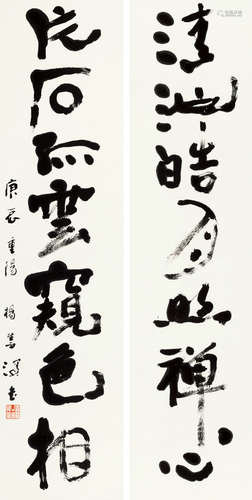 清池皓月照禅心
片石孤雲窺色相
庚辰重陽 楊善深書